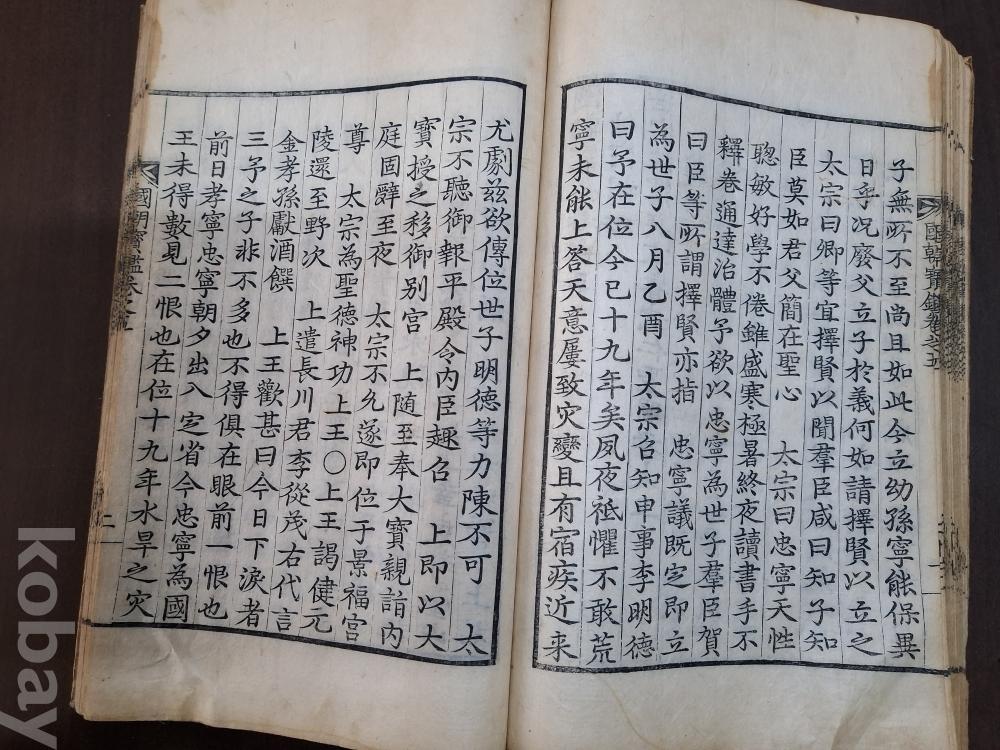 子無所不至尚且如此今立幼孫寧能保異
日乎况廢父立子於義何如請擇賢以立之
太宗曰卿等宜擇賢以聞羣臣咸曰知子知
臣莫如君父簡在聖心 太宗曰忠寧天性
聦敏好學不倦雖盛寒極暑終夜讀書手不
釋卷通達治體予欲以忠寧為世子羣臣賀
曰臣等所謂擇賢亦指 忠寧議既㝎即立
為世子八月乙酉 太宗召知申事李明德
曰予在位今已十九年矣夙夜祗懼不敢荒
寧未能上答天意屢致灾變且有宿疾近来
尤劇兹欲傳位世子明德等力陳不可 太
宗不聽御報平殿令内臣趣召 上即以大
寳授之移御别宮 上随至奉大寳親詣内
庭固辭至夜 太宗不允遂即位于景福宮
尊 太宗為聖德神功上王○上王謁健元
陵還至野次 上遣長川君李從茂右代言
金孝孫獻酒饌 上王歡甚曰今日下淚者
三予之子非不多也不得俱在眼前一恨也
前日孝寧忠寧朝夕出入㝎省今忠寧為國
王未得數見二恨也在位十九年水旱之灾
國朝寳鑑卷之五
二
國朝寳鑑卷之五
kobay